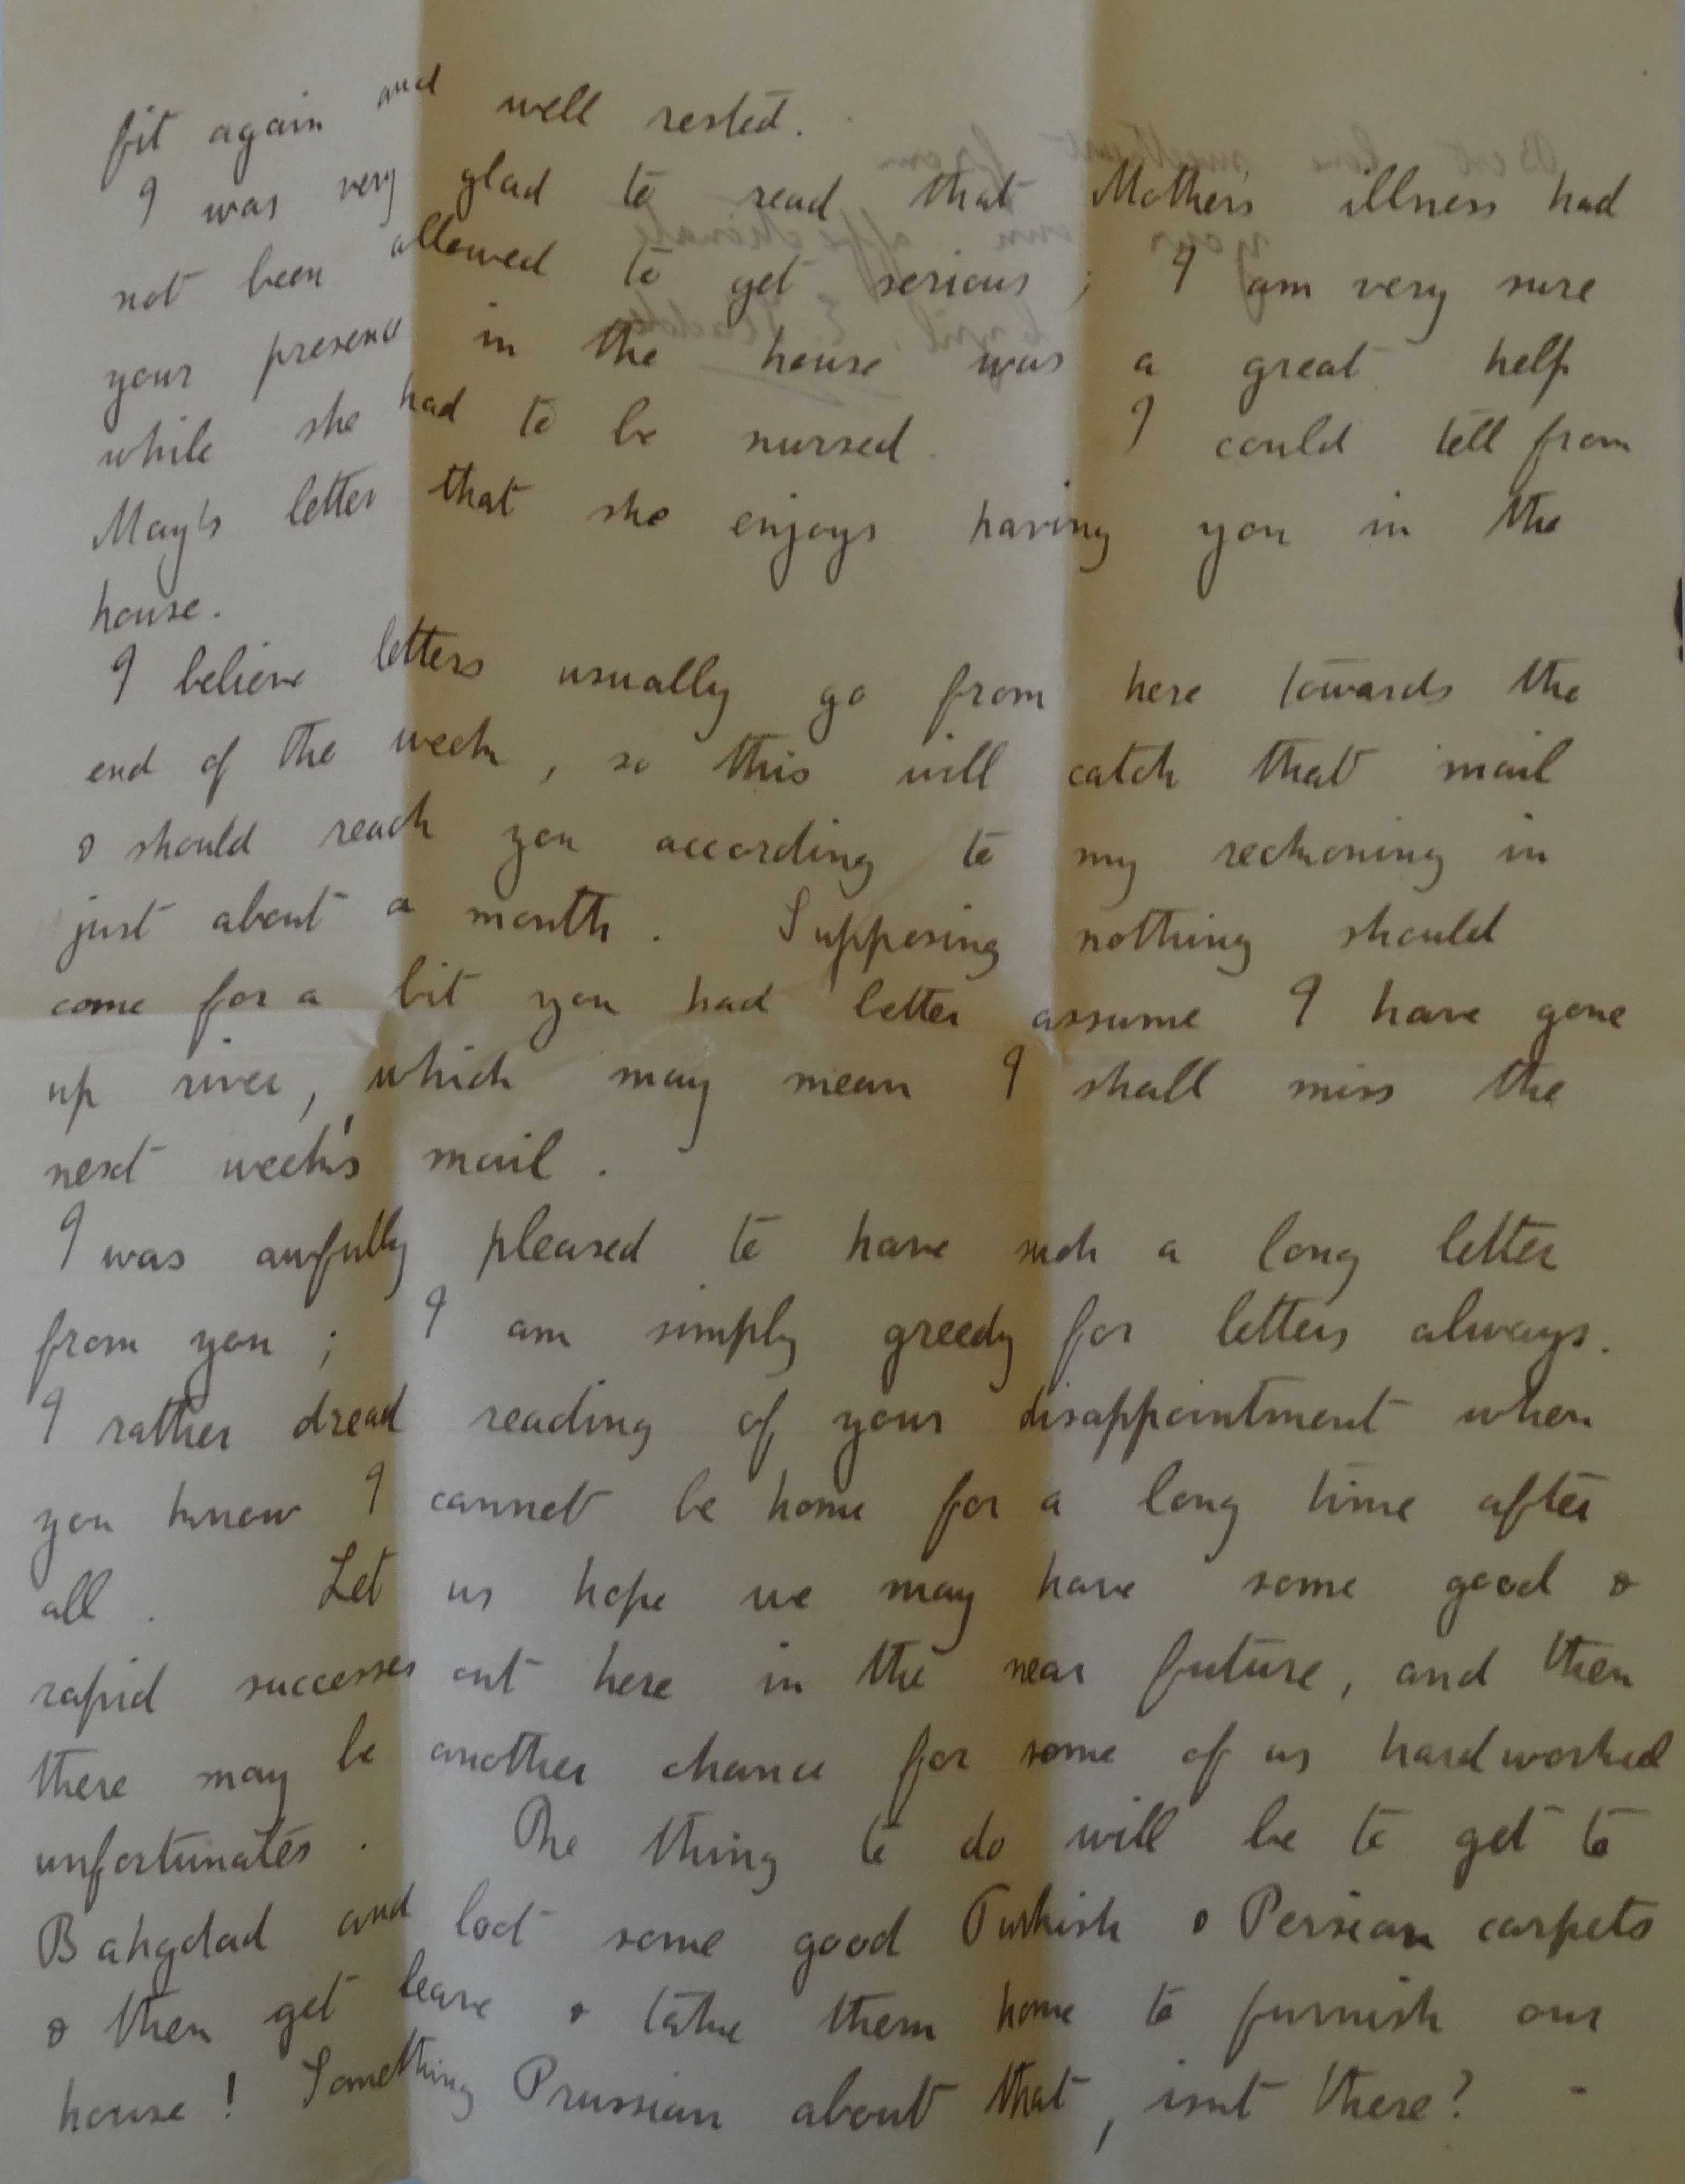 fit again and well rested.
I was very glad to read that Mother's illness had
not been allowed to get serious; I am very sure
your presence in the house was a great help
while she had to be nursed. I could tell from
May's letter that she enjoys having you in the
house.
I believe letters usually go from here towards the
end of the week, so this will catch that mail
& should reach you according to my reckoning in
just about a month. Supposing nothing should
come for a bit you had better assume I have gone
up river, which may mean I shall miss the
next week's mail.
I was awfully pleased to have such a long letter
from you; I am simply greedy for letters always.
I rather dread reading of your disappointment when
you know I cannot be home for a long time after
all. Let us hope we may have some good &
rapid successes out here in the near future, and then
there may be another chance for some of us hardworked
unfortunates. The thing to do will be to get to
Bahgdad and loot some good Turkish & Persian carpets
& then get leave & take them home to furnish our
house! Something Prussian about that, isnt there? -